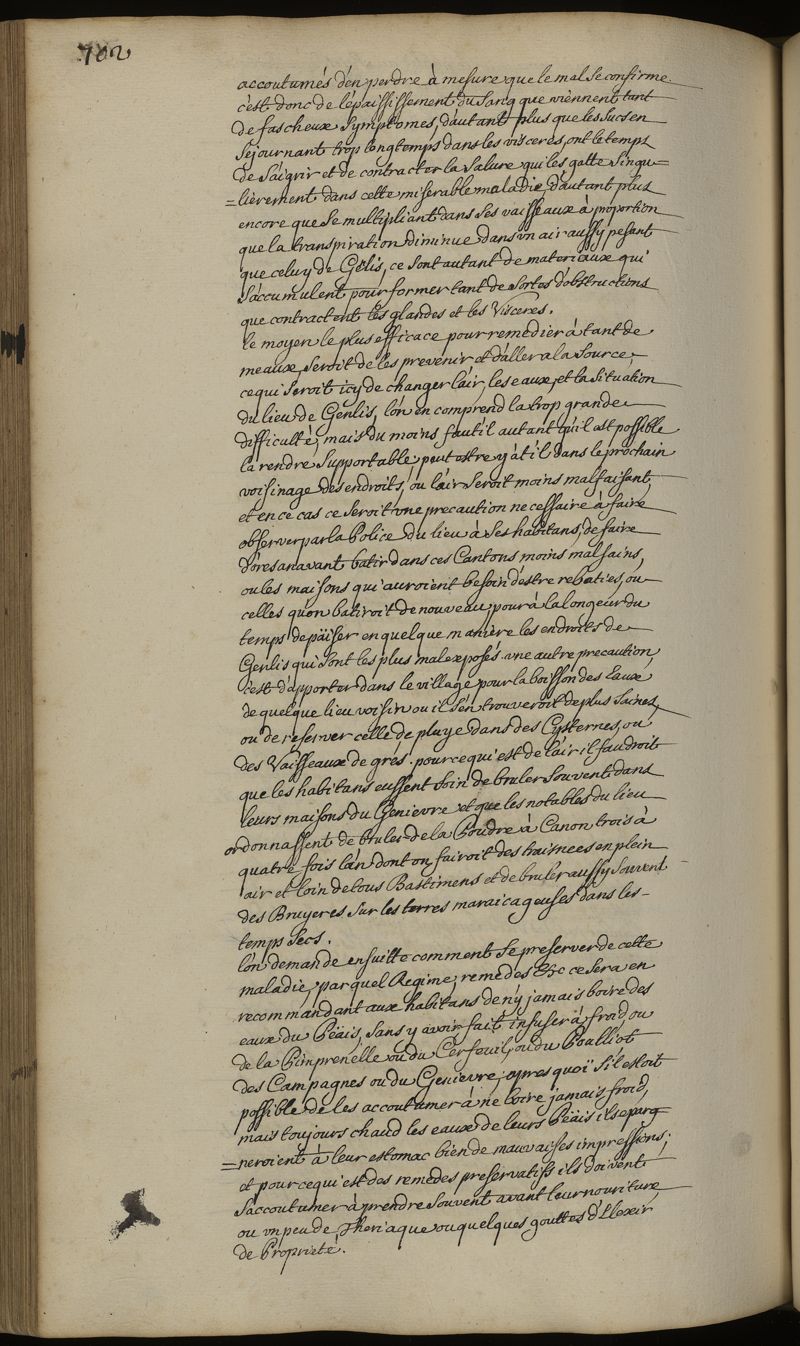 702
accoutumés d'en perdre à mesure que le mal se confirme
c'est donc de l'épaississement du sang que viènnent tant
de fascheux symptomes, d'autant plus que les sucs en
sejournant trop longtemps dans les visceres, ont le temps
de s'aigrir et de contracter la salure qui les gatte singu=
=lièrement dans cette miserable maladie, d'autant plus
encore que se multipliant dans ses vaisseaux à proportion
que la transpiration diminue dans un air aussy pesant
que celuy de Gelis, ce sont autant de materiaux qui
s'accumulent pour former tant de sortes d'obstructions
que contractent les glandes et les Visceres.
le moyen le plus efficace pour remedier à tant de
meaux, seroit de les prevenir et d'aller a la source,
ce qui seroit icy de changer l'air, les eaux, et la situation
du lieu de Genlis, l'on en comprend la trop grande
difficulté, mais du moins faut il autant qu'il est possible
la rendre supportable, peut estre y at il dans le prochain
voisinage des endroits, ou l'air seroit moins malfaisant,
et en ce cas ce seroit une precaution necessaire à faire
observer par la Police du lieu à ses habitans, de faire
d'oresanavant batir dans ces Cantons moins mal sains,
ou les maisons qui auroient besoin d'estre rebaties, ou
celles qu'on batiroit de nouveau, pour à la longeur du
temps depäiser en quelque manière les endroits de
Genlis qui sont les plus mal exposés. une autre precaution
c'est d'apporter dans le village pour la boisson des Eaux
de quelque lieu voisin ou il s'en trouveroit de plus saines,
ou de reserver celle de pluye dans des Cysternes, ou
des Vaisseaux de grés. pour ce qui est de l'air il faudroit
que les habitans eussent soin de bruler souvent dans
leurs maisons du Genievre et que les notables du lieu
ordonnassent de bruler de la Poudre à Canon trois à
quatre fois l'an dont on fairoit des trainees en plein
air et loin de tous Bastimens et de bruler aussy souvent
des Bruyeres sur les terres maraicageuses dans les
temps secs.
l'on demande ensuitte comment se preserver de cette
maladie, par quel Regime, remedes &c ce sera en
recommandant aux habitans de n'y jamais boire des
eaux du Päis, sans y avoir fait infuser à froid, ou
de la Pimprenelle ou du Cerfeuil, ou du Poulliot
des Campagnes ou du Genievre, apres quoï s'il estoit
possible de les accoutumer à ne boire jamais froid,
mais toujours chaud les eaux de leurs Päis ils eparg=
=neroient à leur estomac bien de mauvaises impressions;
et pour ce qui est des remedes preservatifs ils doivent
s'accoutumer à prendre souvent avant leur nouriture
ou un peu de Theriaque ou quelques gouttes d'Elexir
de Proprieté.